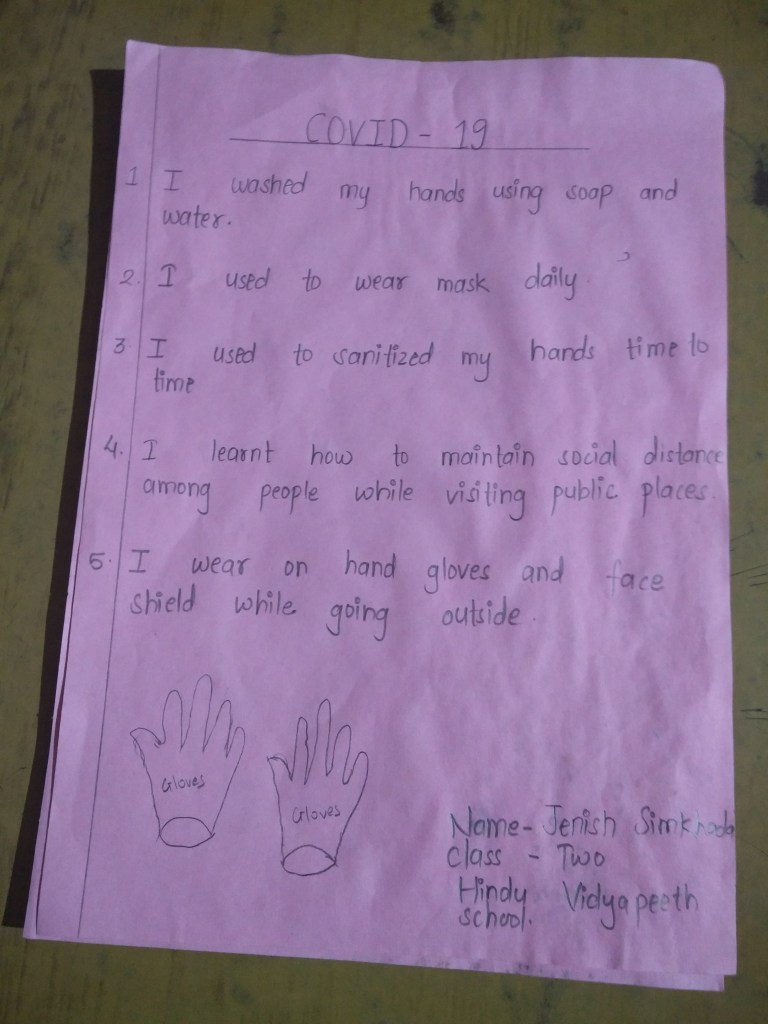 COVID - 19
1 I washed my hands using soap and
water.
2. I used to wear mask daily.
3 I used to sanitized my hands time to
time
4. I learnt how to maintain social distance
among people while visiting public places.
5. I wear on hand gloves and face
shield while going outside.
Gloves
Gloves
Name- Jenish Simkhada
Class - Two
Hindy Vidyapeeth
school.